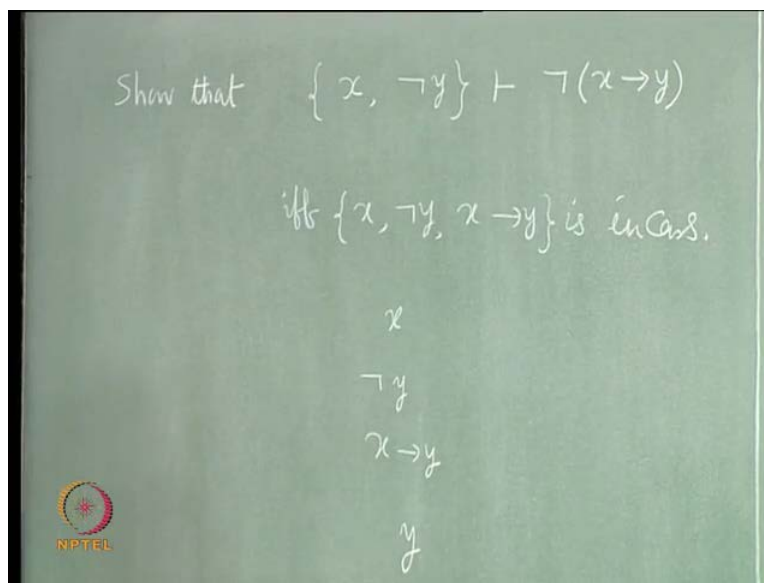 Show that { x, ¬y} ⊢ ¬(x→y)
iff {x, ¬y, x →y} is incons.
x
¬y
x→y
y
NPTEL